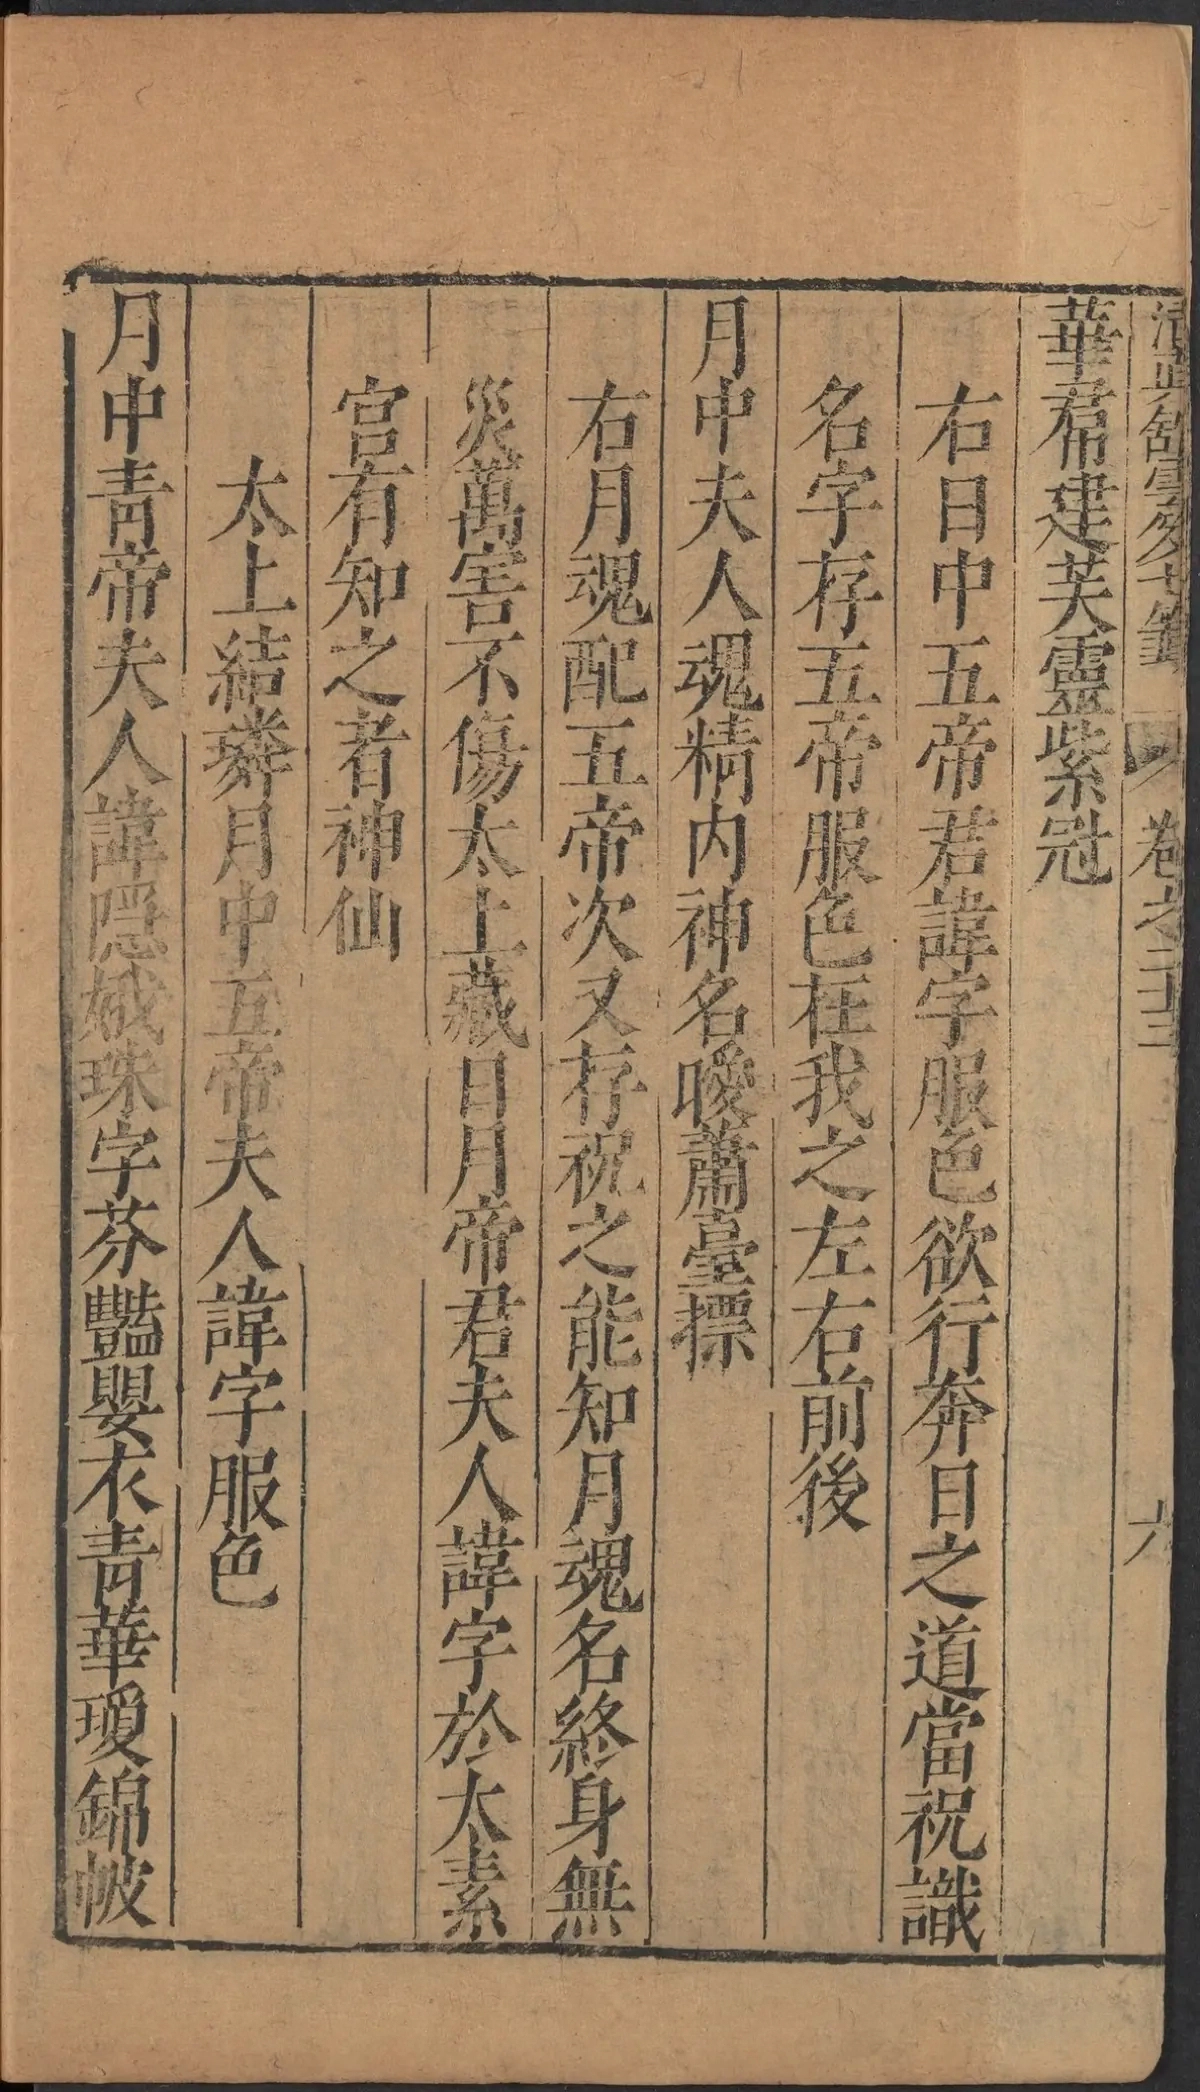 清真館雲笈七籤 卷之二十三 六
華帬建芙靈紫冠
右日中五帝君諱字服色欲行奔日之道當祝識
名字存五帝服色在我之左右前後
月中夫人魂精内神名曖蕭臺摽
右月魂配五帝次又存祝之能知月魂名終身無
災萬害不傷太上藏日月帝君夫人諱字於太素
宫有知之者神仙
太上結璘月中五帝夫人諱字服色
月中青帝夫人諱隠娥珠字芬豔嬰衣青華瓊錦帔